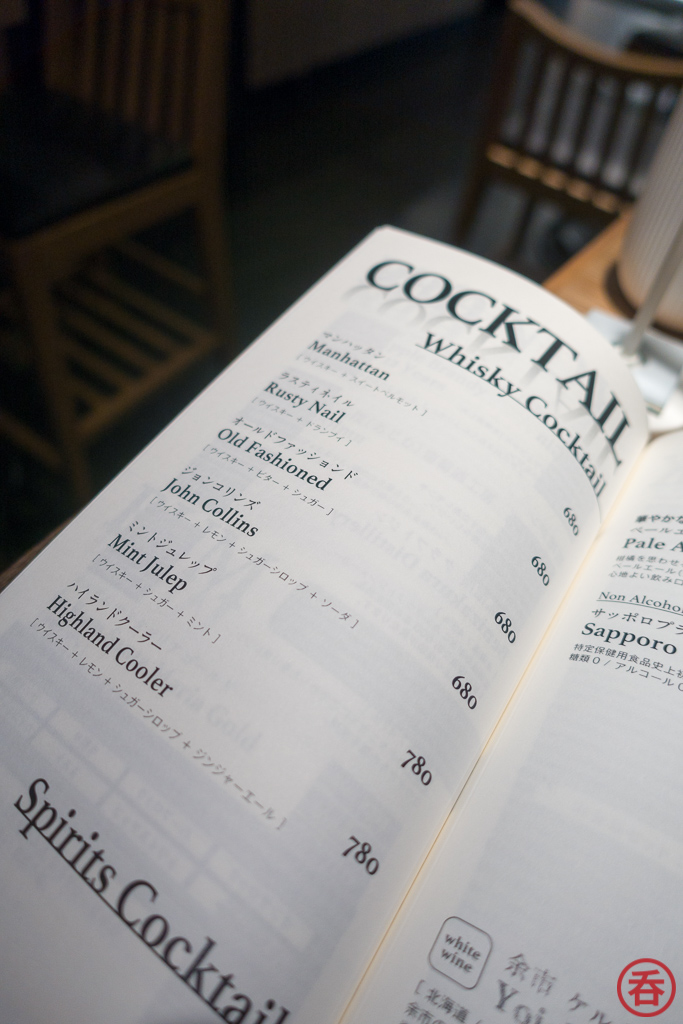 COCKTAIL
Whisky Cocktail
マンハッタン
Manhattan 680
[ ウイスキー + スイートベルモット ]
ラスティネイル
Rusty Nail 680
[ ウイスキー + ドランブイ ]
オールドファッションド
Old Fashioned 680
[ ウイスキー + ビター + シュガー ]
ジョンコリンズ
John Collins 680
[ ウイスキー + レモン + シュガーシロップ + ソーダ ]
ミントジュレップ
Mint Julep 780
[ ウイスキー + シュガー + ミント ]
ハイランドクーラー
Highland Cooler 780
[ ウイスキー + レモン + シュガーシロップ + ジンジャーエール ]
Spirits Cocktail
華やかな
ペールエ
Pale A
心地よい飲み口
Non Alcohol
サッポロプラ
Sapporo
特定保健用食品史上初
糖類0 / アルコール0
white
wine
余市 ケル
Yoi
[ 北海道
余市の
呑